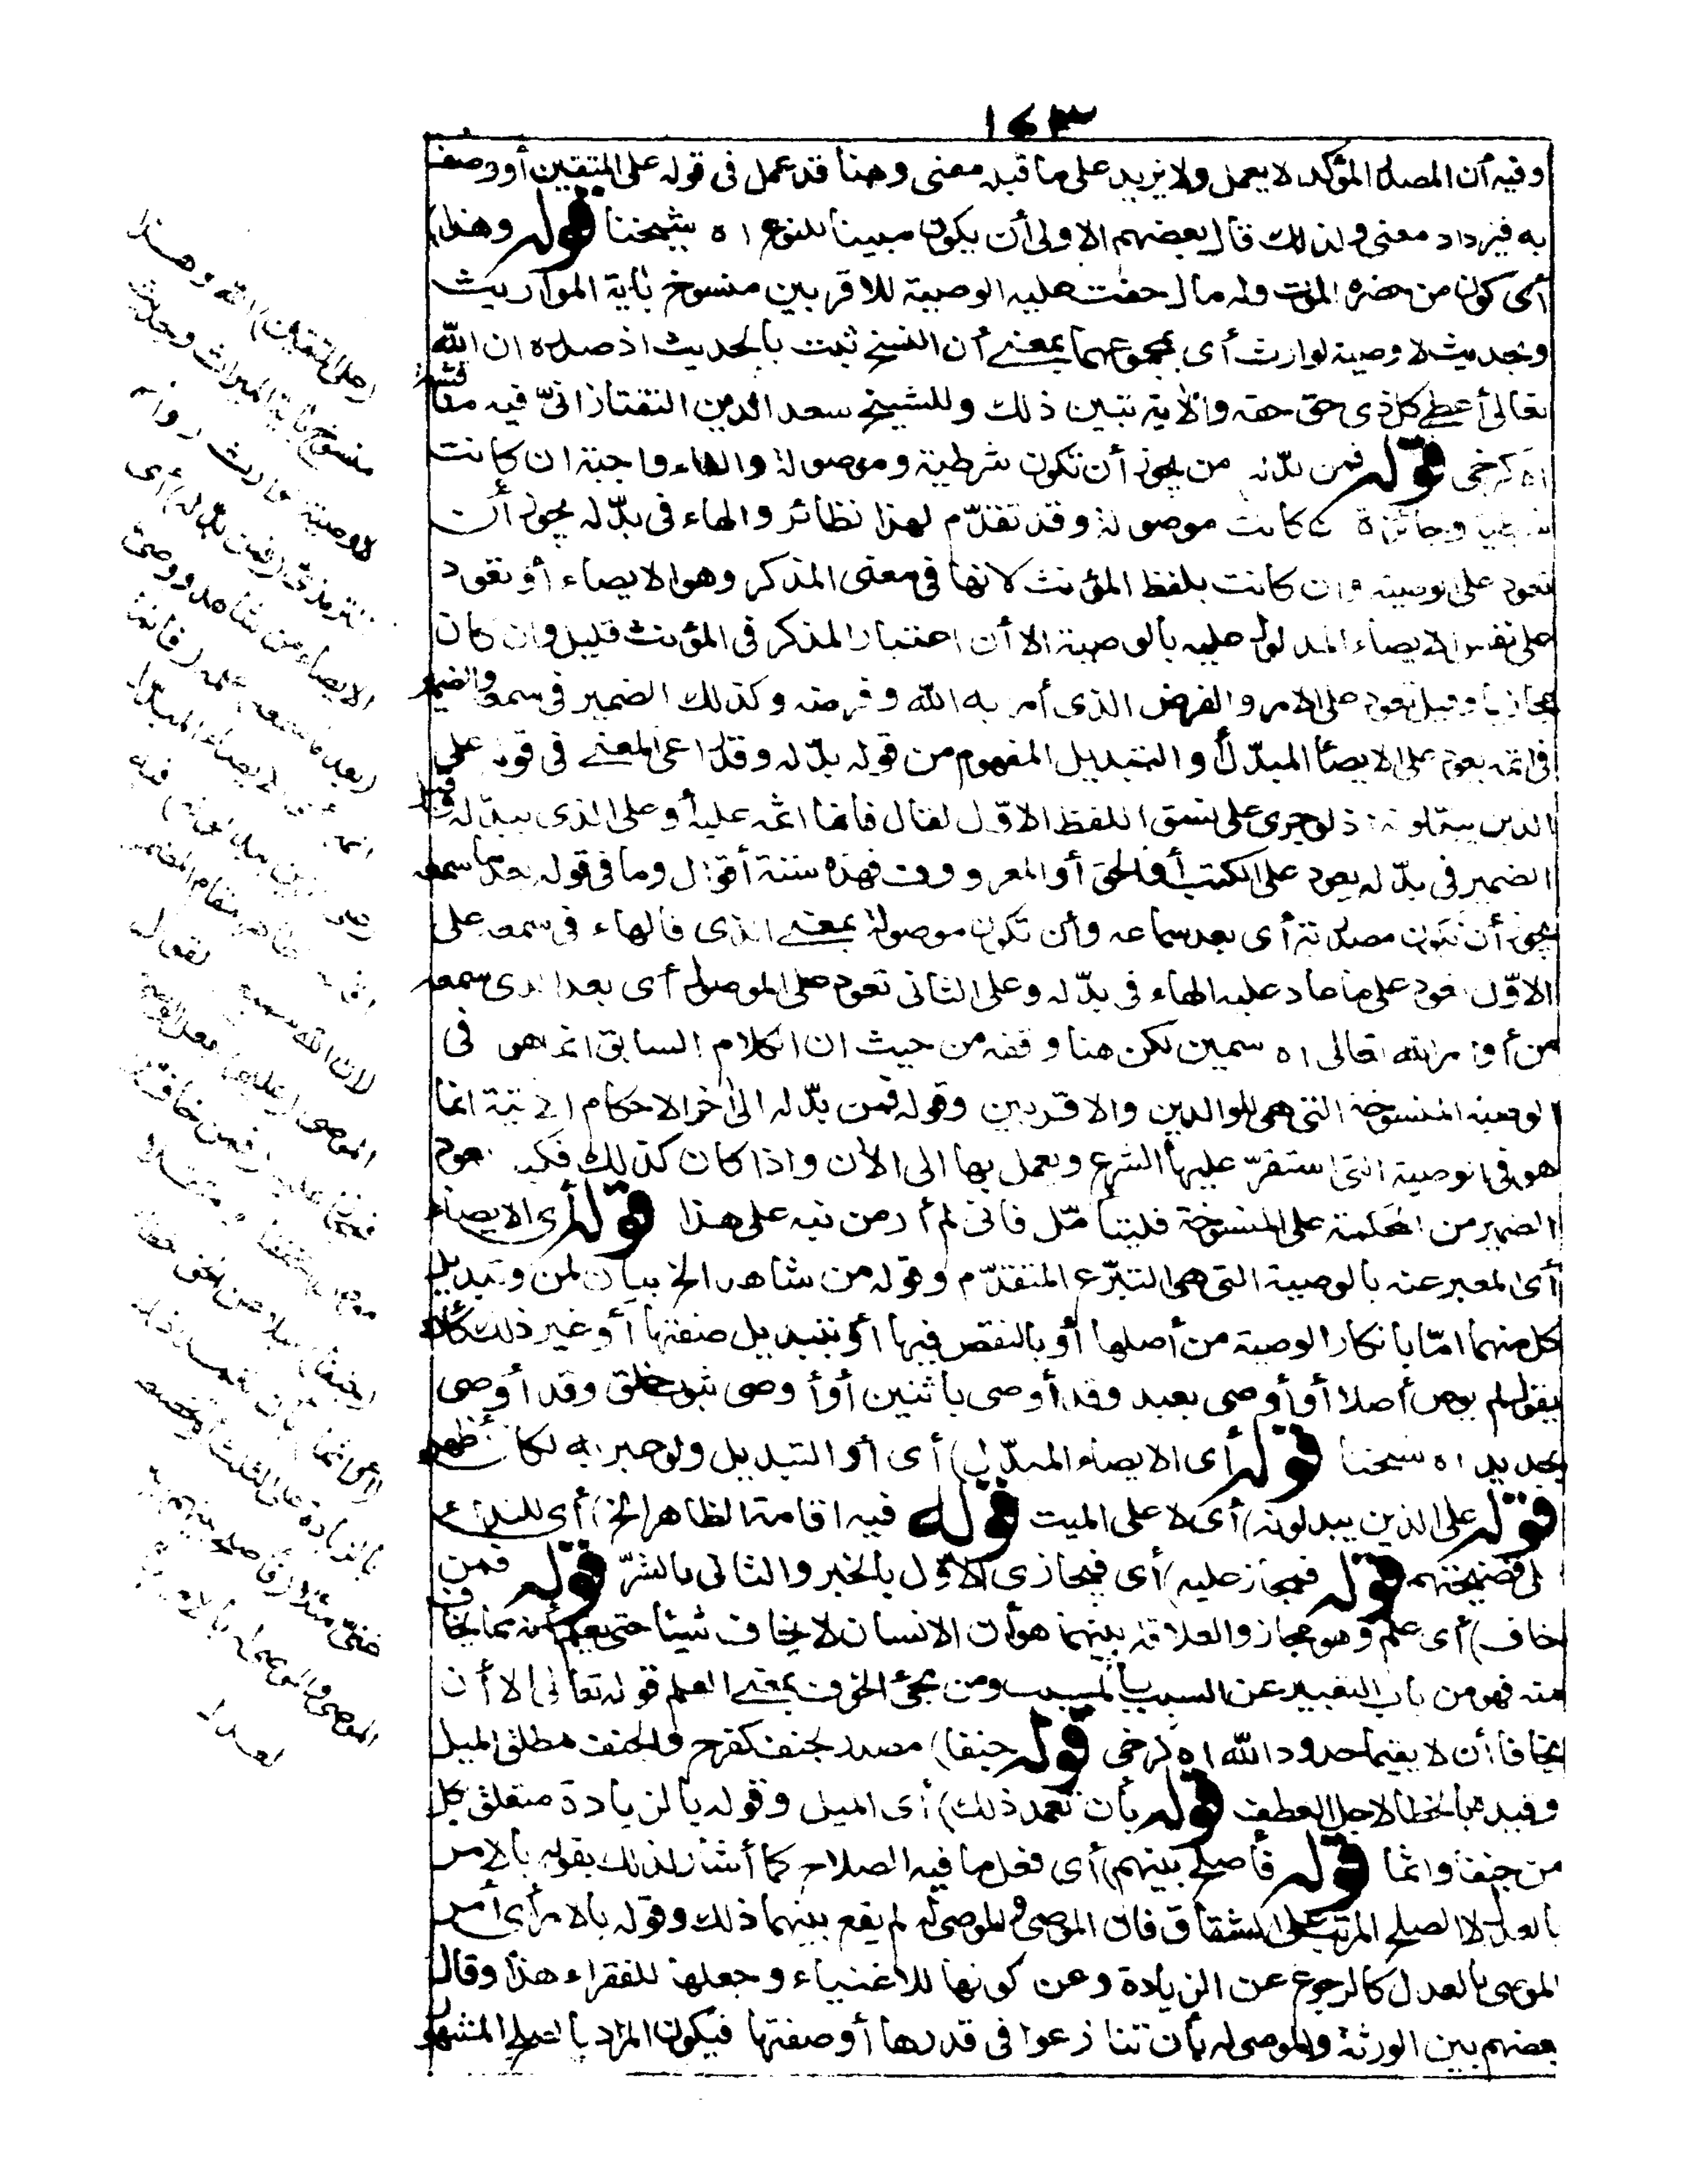 ١٤٣
وفيه أن المصدر المؤكد لا يعمل ولا يزيد على ما قبله معنى وهنا قد عمل فى قوله على المتقين أو وصف
به فيزداد معنى ولذلك قال بعضهم الاولى أن يكون مبينا للنوع اه شيخنا قوله وهذا)
أى كون من حضره الموت وله مال حقت عليه الوصية للاقربين منسوخ بآية المواريث
وبحديث لا وصية لوارث أى بمجموعهما بمعنى أن النسخ ثبت بالحديث اذ صدره ان الله
تعالى أعطى كل ذى حق حقه والآية تبين ذلك وللشيخ سعد الدين التفتازانى فيه مناقشة
اه كرخى قوله فمن بدله من يجوز أن تكون شرطية وموصولة والفاء واجبة ان كانت
شرطية وجائزة ان كانت موصولة وقد تقدّم لهذا نظائر والهاء فى بدّله يجوز أن
تعود على الوصية وان كانت بلفظ المؤنث لانها فى معنى المذكر وهو الايصاء أو تعود
على نفس الايصاء المدلول عليه بالوصية الا أن اعتبار المذكر فى المؤنث قليل وان كان
مجازيا وقيل تعود على الامر والفرض الذى أمر به الله وفرضه وكذلك الضمير فى سمعه والضمير
فى اثمه يعود على الايصاء المبدّل أو التبديل المفهوم من قوله بدّله وقد راعى المعنى فى قوله على
الذين يبدّلونه اذ لو جرى على نسق اللفظ الاوّل لقال فانما اثمه عليه أو على الذى يبدّله وقيل
الضمير فى بدّله يعود على الكتب أو الحق أو المعروف فهذه ستة أقوال وما فى قوله بعد ما سمعه
يجوز أن تكون مصدرية أى بعد سماعه وأن تكون موصولة بمعنى الذى فالهاء فى سمعه على
الاوّل تعود على ما عاد عليه الهاء فى بدّله وعلى الثانى تعود على الموصول أى بعد الذى سمعه
من أوامر الله تعالى اه سمين لكن هنا وقفة من حيث ان الكلام السابق انما هو فى
الوصية المنسوخة التى هى للوالدين والاقربين وقوله فمن بدّله الى آخر الاحكام الآتية انما
هو فى الوصية التى استقرّ عليها الشرع ويعمل بها الى الآن واذا كان كذلك فكيف يعود
الضمير من المحكمة على المنسوخة فليتأمّل فانى لم أر من نبه على هذا قوله أى الايصاء
أى المعبر عنه بالوصية التى هى التبرّع المتقدّم وقوله من شاهد الخ بيان لمن وتبديل
كل منهما امّا بانكار الوصية من أصلها أو بالنقص فيها أو بتبديل صفتها أو غير ذلك كأن
يقول لم يوص أصلا أو أوصى بعبد وقد أوصى باثنين أو أوصى بثوب خلق وقد أوصى
بجديد اه شيخنا قوله أى الايصاء المبدّل) أى أو التبديل ولو عبر به لكان أظهر
قوله على الذين يبدلونه) أى لا على الميت قوله فيه اقامة الظاهر الخ) أى للنداء
على فضيحتهم قوله فمجاز عليه) أى فيجازى الاوّل بالخير والثانى بالشرّ قوله فمن
خاف) أى علم وهو مجاز والعلاقة بينهما هو أن الانسان لا يخاف شيئا حتى يعلم أنه مما يخاف
منه فهو من باب التعبير عن السبب بالمسبب ومن مجئ الخوف بمعنى العلم قوله تعالى الا أن
يخافا أن لا يقيما حدود الله اه كرخى قوله جنفا) مصدر لجنف كفرح والجنف مطلق الميل
وقيده بالخطا لاجل العطف قوله بأن تعمد ذلك) أى الميل وقوله بالزيادة متعلق بكل
من جنفا واثما قوله فأصلح بينهم) أى فعل ما فيه الصلاح كما أشار لذلك بقوله بالامر
بالعدل لا الصلح المرتب على الشقاق فان الموصى والموصى له لم يقع بينهما ذلك وقوله بالامر أى أمر
الموصى بالعدل كالرجوع عن الزيادة وعن كونها للاغنياء وجعلها للفقراء هذا وقال
بعضهم بين الورثة والموصى له بأن تنازعوا فى قدرها أو صفتها فيكون المراد بالصلح المشهور
(على المتقين) الله وهذا
منسوخ بآية الميراث وبحديث
لا وصية لوارث رواه
الترمذى (فمن بدّله) أى
الايصاء من شاهد ووصى
(بعد ما سمعه) علمه (فانما
اثمه) أى الايصاء المبدّل
(على الذين يبدلونه) فيه
اقامة الظاهر مقام المضمر
(ان الله سميع) لقول
الموصى (عليم) بفعل الوصى
فمجاز عليه (فمن خاف من
موص) مخففا ومثقلا
(جنفا) ميلا عن الحق خطأ
(أو اثما) بأن تعمد ذلك
بالزيادة على الثلث أو تخصيص
غنى مثلا (فأصلح بينهم) بين
الموصى والموصى له بالامر
بالعدل